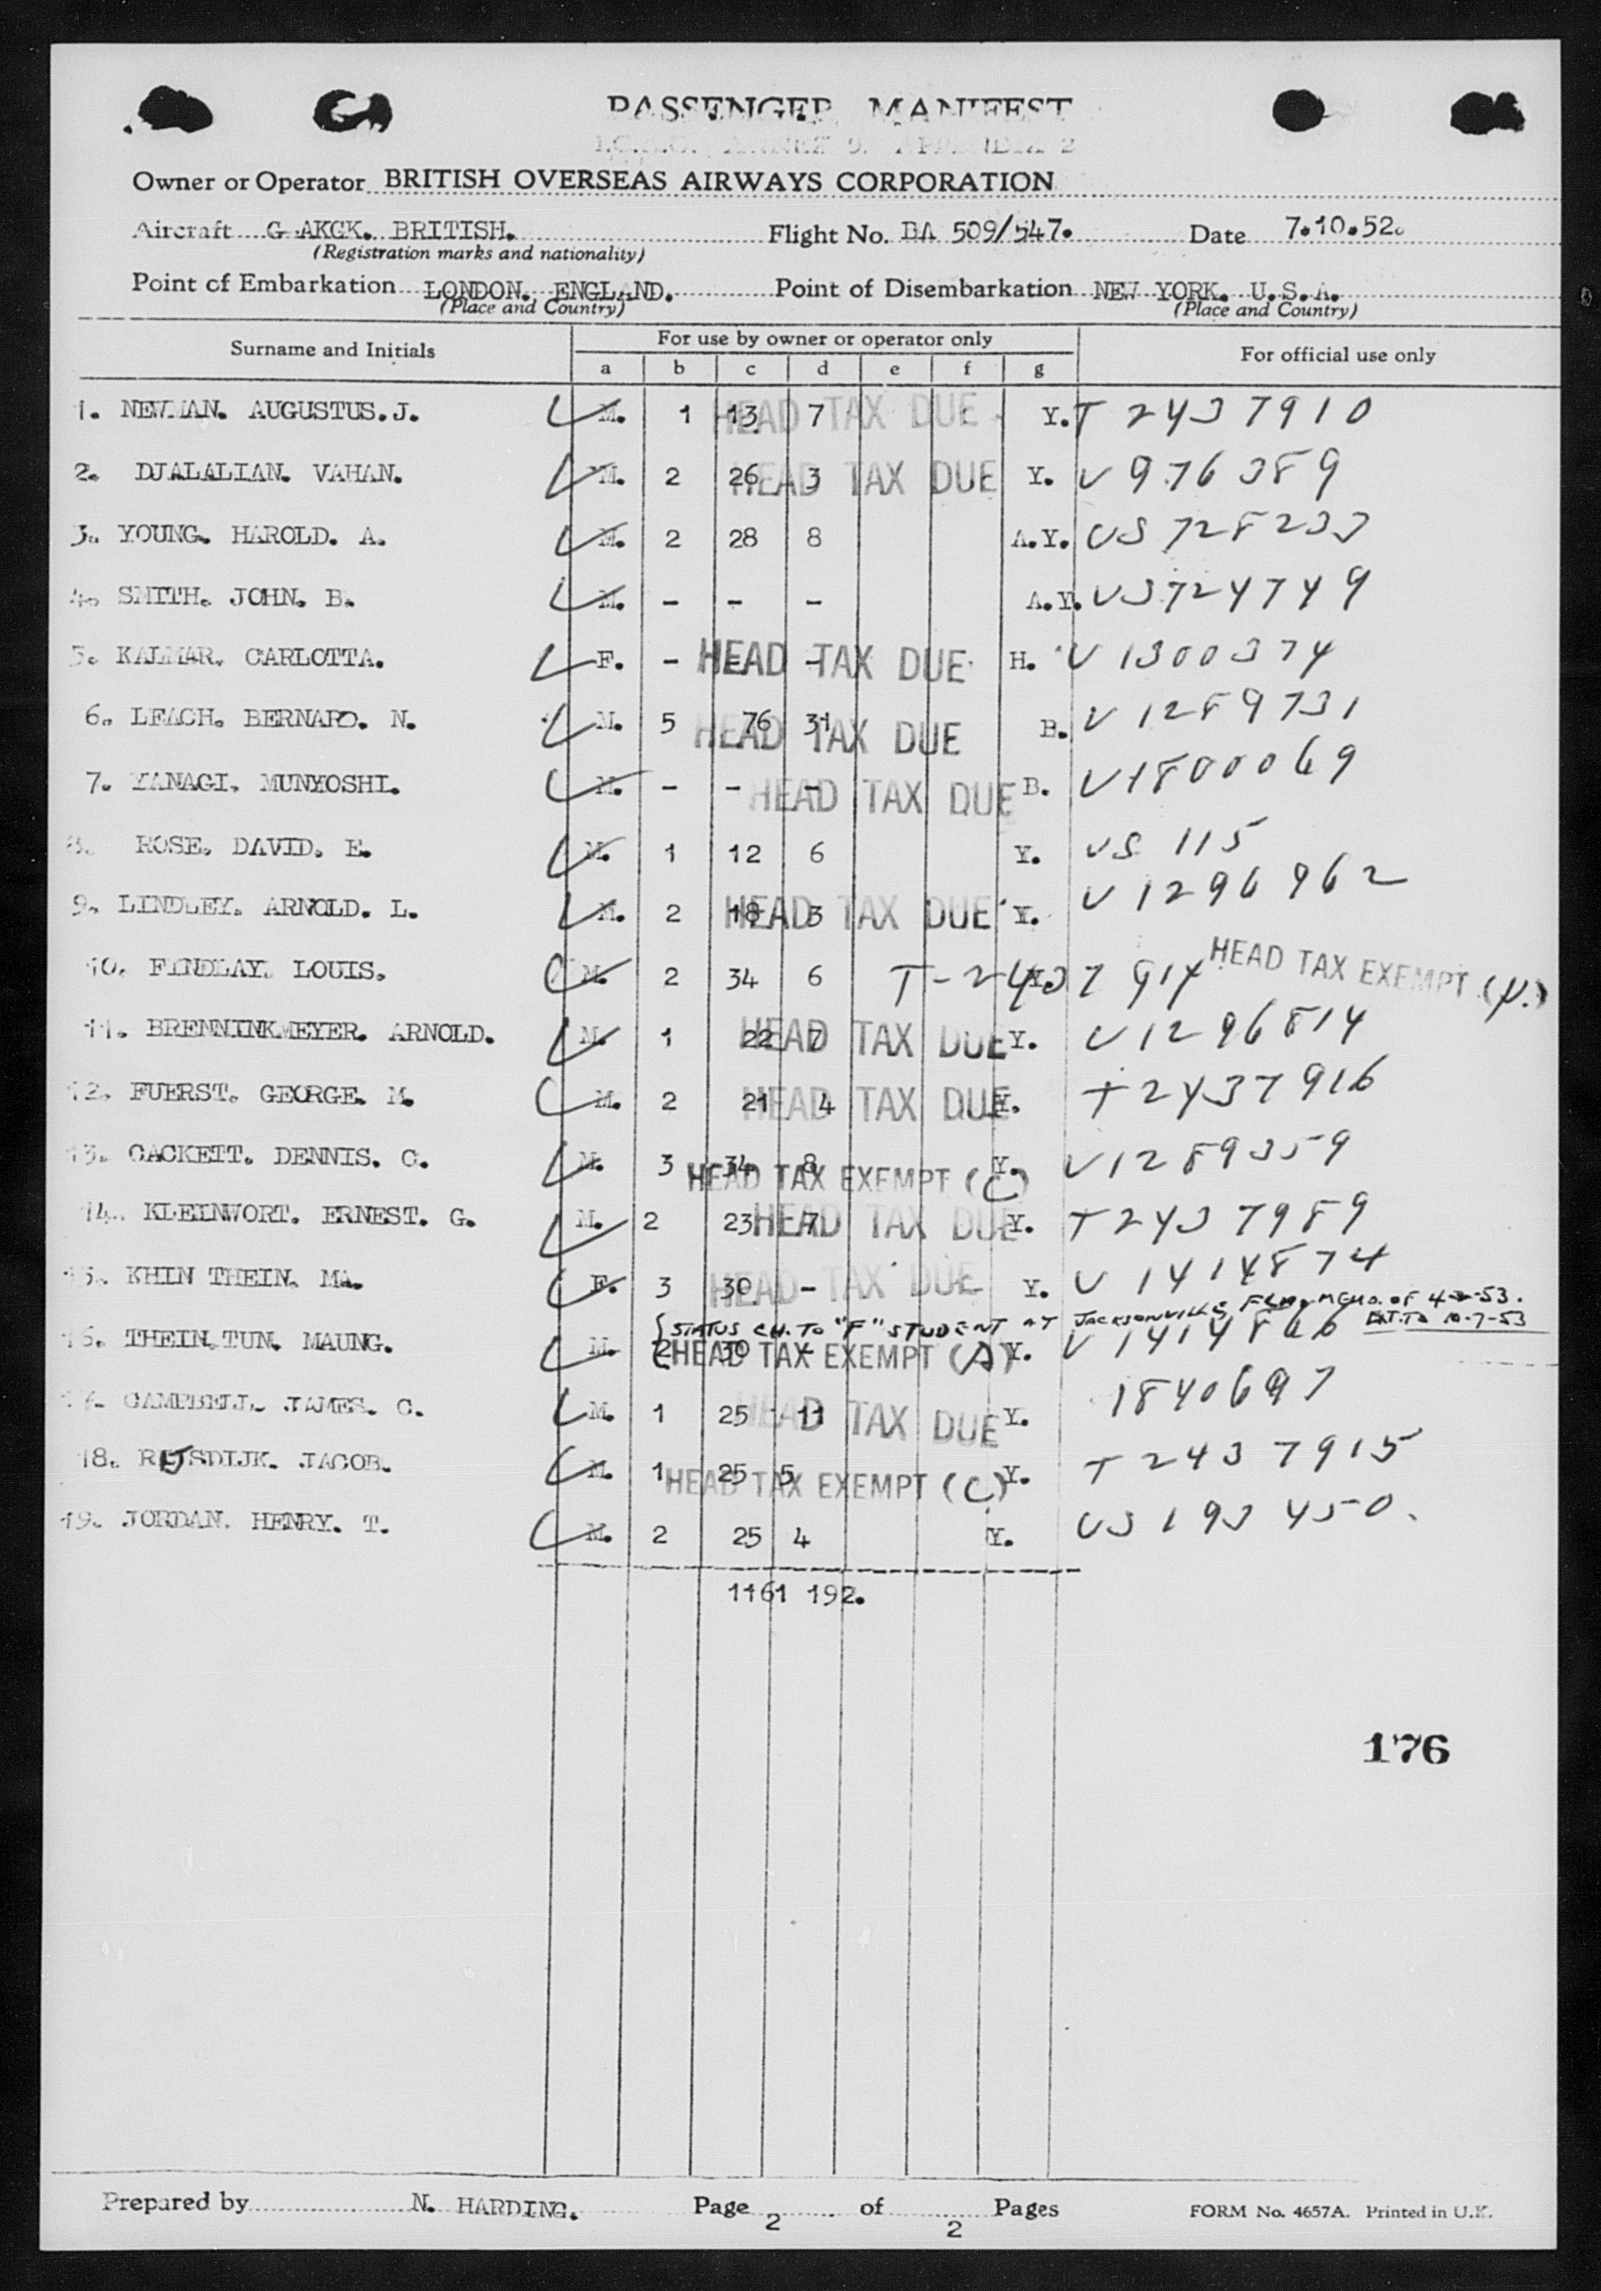 PASSENGER MANIFEST
Owner or Operator BRITISH OVERSEAS AIRWAYS CORPORATION
Aircraft G AKGK. BRITISH. Flight No. BA 509/547. Date 7.10.52.
(Registration marks and nationality)
Point of Embarkation LONDON. ENGLAND. Point of Disembarkation NEW YORK. U.S.A.
(Place and Country) (Place and Country)
Surname and Initials For use by owner or operator only For official use only
a b c d e f g
1. NEWMAN. AUGUSTUS.J. M. 1 13 7 HEAD TAX DUE Y. T 2437910
2. DJALALIAN. VAHAN. M. 2 26 3 HEAD TAX DUE Y. V 976389
3. YOUNG. HAROLD. A. M. 2 28 8 A.Y. US 728233
4. SMITH. JOHN. B. M. - - - A.Y. US 724749
5. KALMAR. CARLOTTA. F. - - - HEAD TAX DUE H. V 1300374
6. LEACH. BERNARD. N. M. 5 76 31 HEAD TAX DUE B. V 1289731
7. YANAGI. MUNYOSHI. M. - - - HEAD TAX DUE B. V 1800069
8. ROSE. DAVID. E. M. 1 12 6 Y. US 115
9. LINDLEY. ARNOLD. L. M. 2 18 3 HEAD TAX DUE Y. V 1296962
10. FINDLAY. LOUIS. M. 2 34 6 T-2437914 HEAD TAX EXEMPT
11. BRENNINKMEYER. ARNOLD. M. 1 22 7 HEAD TAX DUE Y. V 1296814
12. FUERST. GEORGE. M. M. 2 21 4 HEAD TAX DUE Y. T 2437916
13. CACKETT. DENNIS. C. M. 3 34 8 Y. V 1289359
HEAD TAX EXEMPT (C)
14. KLEINWORT. ERNEST. G. M. 2 23 7 HEAD TAX DUE Y. T 2437989
15. KHIN THEIN. MA. F. 3 30 - HEAD TAX DUE Y. V 1414874
STATUS CH. TO "F" STUDENT AT JACKSONVILLE FLA. MEMO. OF 53. EXT. TO 10-7-53
16. THEIN.TUN. MAUNG. M. 2 30 - Y. V 1414866
HEAD TAX EXEMPT (A)
17. CAMPBELL. JAMES. C. M. 1 25 11 HEAD TAX DUE Y. 1840697
18. RIJSDIJK. JACOB. M. 1 25 5 Y. T 2437915
HEAD TAX EXEMPT (C)
19. JORDAN. HENRY. T. M. 2 25 4 Y. US 193450.
1161 192.
176
Prepared by N. HARDING. Page 2 of 2 Pages FORM No. 4657A. Printed in U.K.